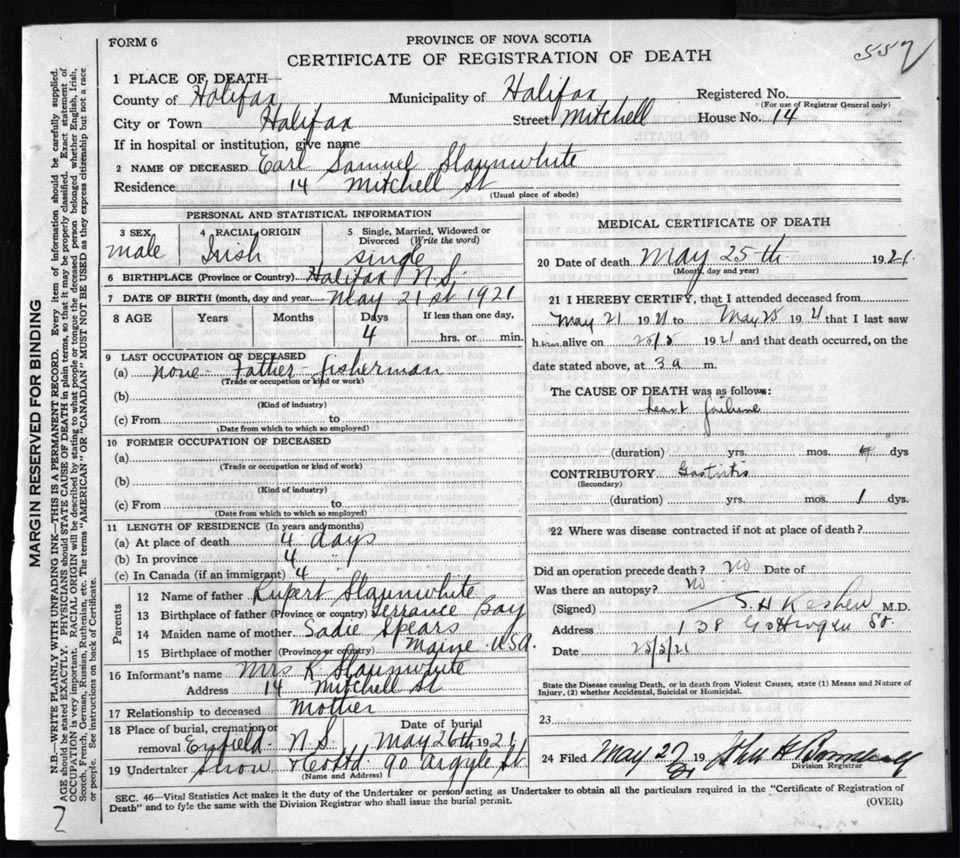 FORM 6
PROVINCE OF NOVA SCOTIA
557
CERTIFICATE OF REGISTRATION OF DEATH
1 PLACE OF DEATH
County of Halifax Municipality of Halifax Registered No.
(For use of Registrar General only)
City or Town Halifax Street Mitchell House No. 14
If in hospital or institution, give name
2 NAME OF DECEASED Earl Samuel Slaunwhite
Residence 14 Mitchell St
(Usual place of abode)
PERSONAL AND STATISTICAL INFORMATION
3 SEX male
4 RACIAL ORIGIN Irish
5 Single, Married, Widowed or Divorced (Write the word) single
6 BIRTHPLACE (Province or Country) Halifax N.S.
7 DATE OF BIRTH (month, day and year) May 21st 1921
8 AGE Years Months Days If less than one day,
4 hrs. or min.
9 LAST OCCUPATION OF DECEASED
(a) none - Father - fisherman
(Trade or occupation or kind or work)
(b)
(Kind of industry)
(c) From to
(Date from which to which so employed)
10 FORMER OCCUPATION OF DECEASED
(a)
(Trade or occupation or kind of work)
(b)
(Kind of industry)
(c) From to
(Date from which to which so employed)
11 LENGTH OF RESIDENCE (In years and months)
(a) At place of death 4 days
(b) In province 4 "
(c) In Canada (if an immigrant) 4
Parents
12 Name of father Rupert Slaunwhite
13 Birthplace of father (Province or country) Terrance Bay
14 Maiden name of mother Sadie Spears
15 Birthplace of mother (Province or country) Maine USA.
16 Informant's name Mrs R Slaunwhite
Address 14 Mitchell St
17 Relationship to deceased Mother
18 Place of burial, cremation or removal Enfield N.S. Date of burial May 26th 1921
19 Undertaker Snow & Co Ltd 90 Argyle St
(Name and Address)
MEDICAL CERTIFICATE OF DEATH
20 Date of death May 25th 1921.
(Month, day and year)
21 I HEREBY CERTIFY, that I attended deceased from
May 21 1921 to May 25 1921 that I last saw
h alive on 25/5 1921 and that death occurred, on the
date stated above, at 3 a m.
The CAUSE OF DEATH was as follows:
heart failure
(duration) yrs. mos. dys
CONTRIBUTORY Gastritis
(Secondary)
(duration) yrs. mos. 1 dys.
22 Where was disease contracted if not at place of death?
Did an operation precede death? No Date of
Was there an autopsy? No
(Signed) M.D.
Address 138 Gottingen St.
Date 25/5/21
State the Disease causing Death, or in death from Violent Causes, state (1) Means and Nature of
Injury, (2) whether Accidental, Suicidal or Homicidal.
23
24 Filed May 27 1921 John H
Division Registrar
SEC. 46—Vital Statistics Act makes it the duty of the Undertaker or person acting as Undertaker to obtain all the particulars required in the "Certificate of Registration of
Death" and to fyle the same with the Division Registrar who shall issue the burial permit.
(OVER)
MARGIN RESERVED FOR BINDING
N.B.—WRITE PLAINLY WITH UNFADING INK—THIS IS A PERMANENT RECORD. Every item of information should be carefully supplied.
AGE should be stated EXACTLY. PHYSICIANS should STATE CAUSE OF DEATH in plain terms, so that it may be properly classified. Exact statement of
OCCUPATION is very important. RACIAL ORIGIN will be described by stating to what people or tongue the deceased person belonged, whether English, Irish,
Scotch, French, German, Russian, Ruthenian, etc. The terms "AMERICAN" OR "CANADIAN" MUST NOT BE USED as they express citizenship but not a race
or people. See instructions on back of Certificate.